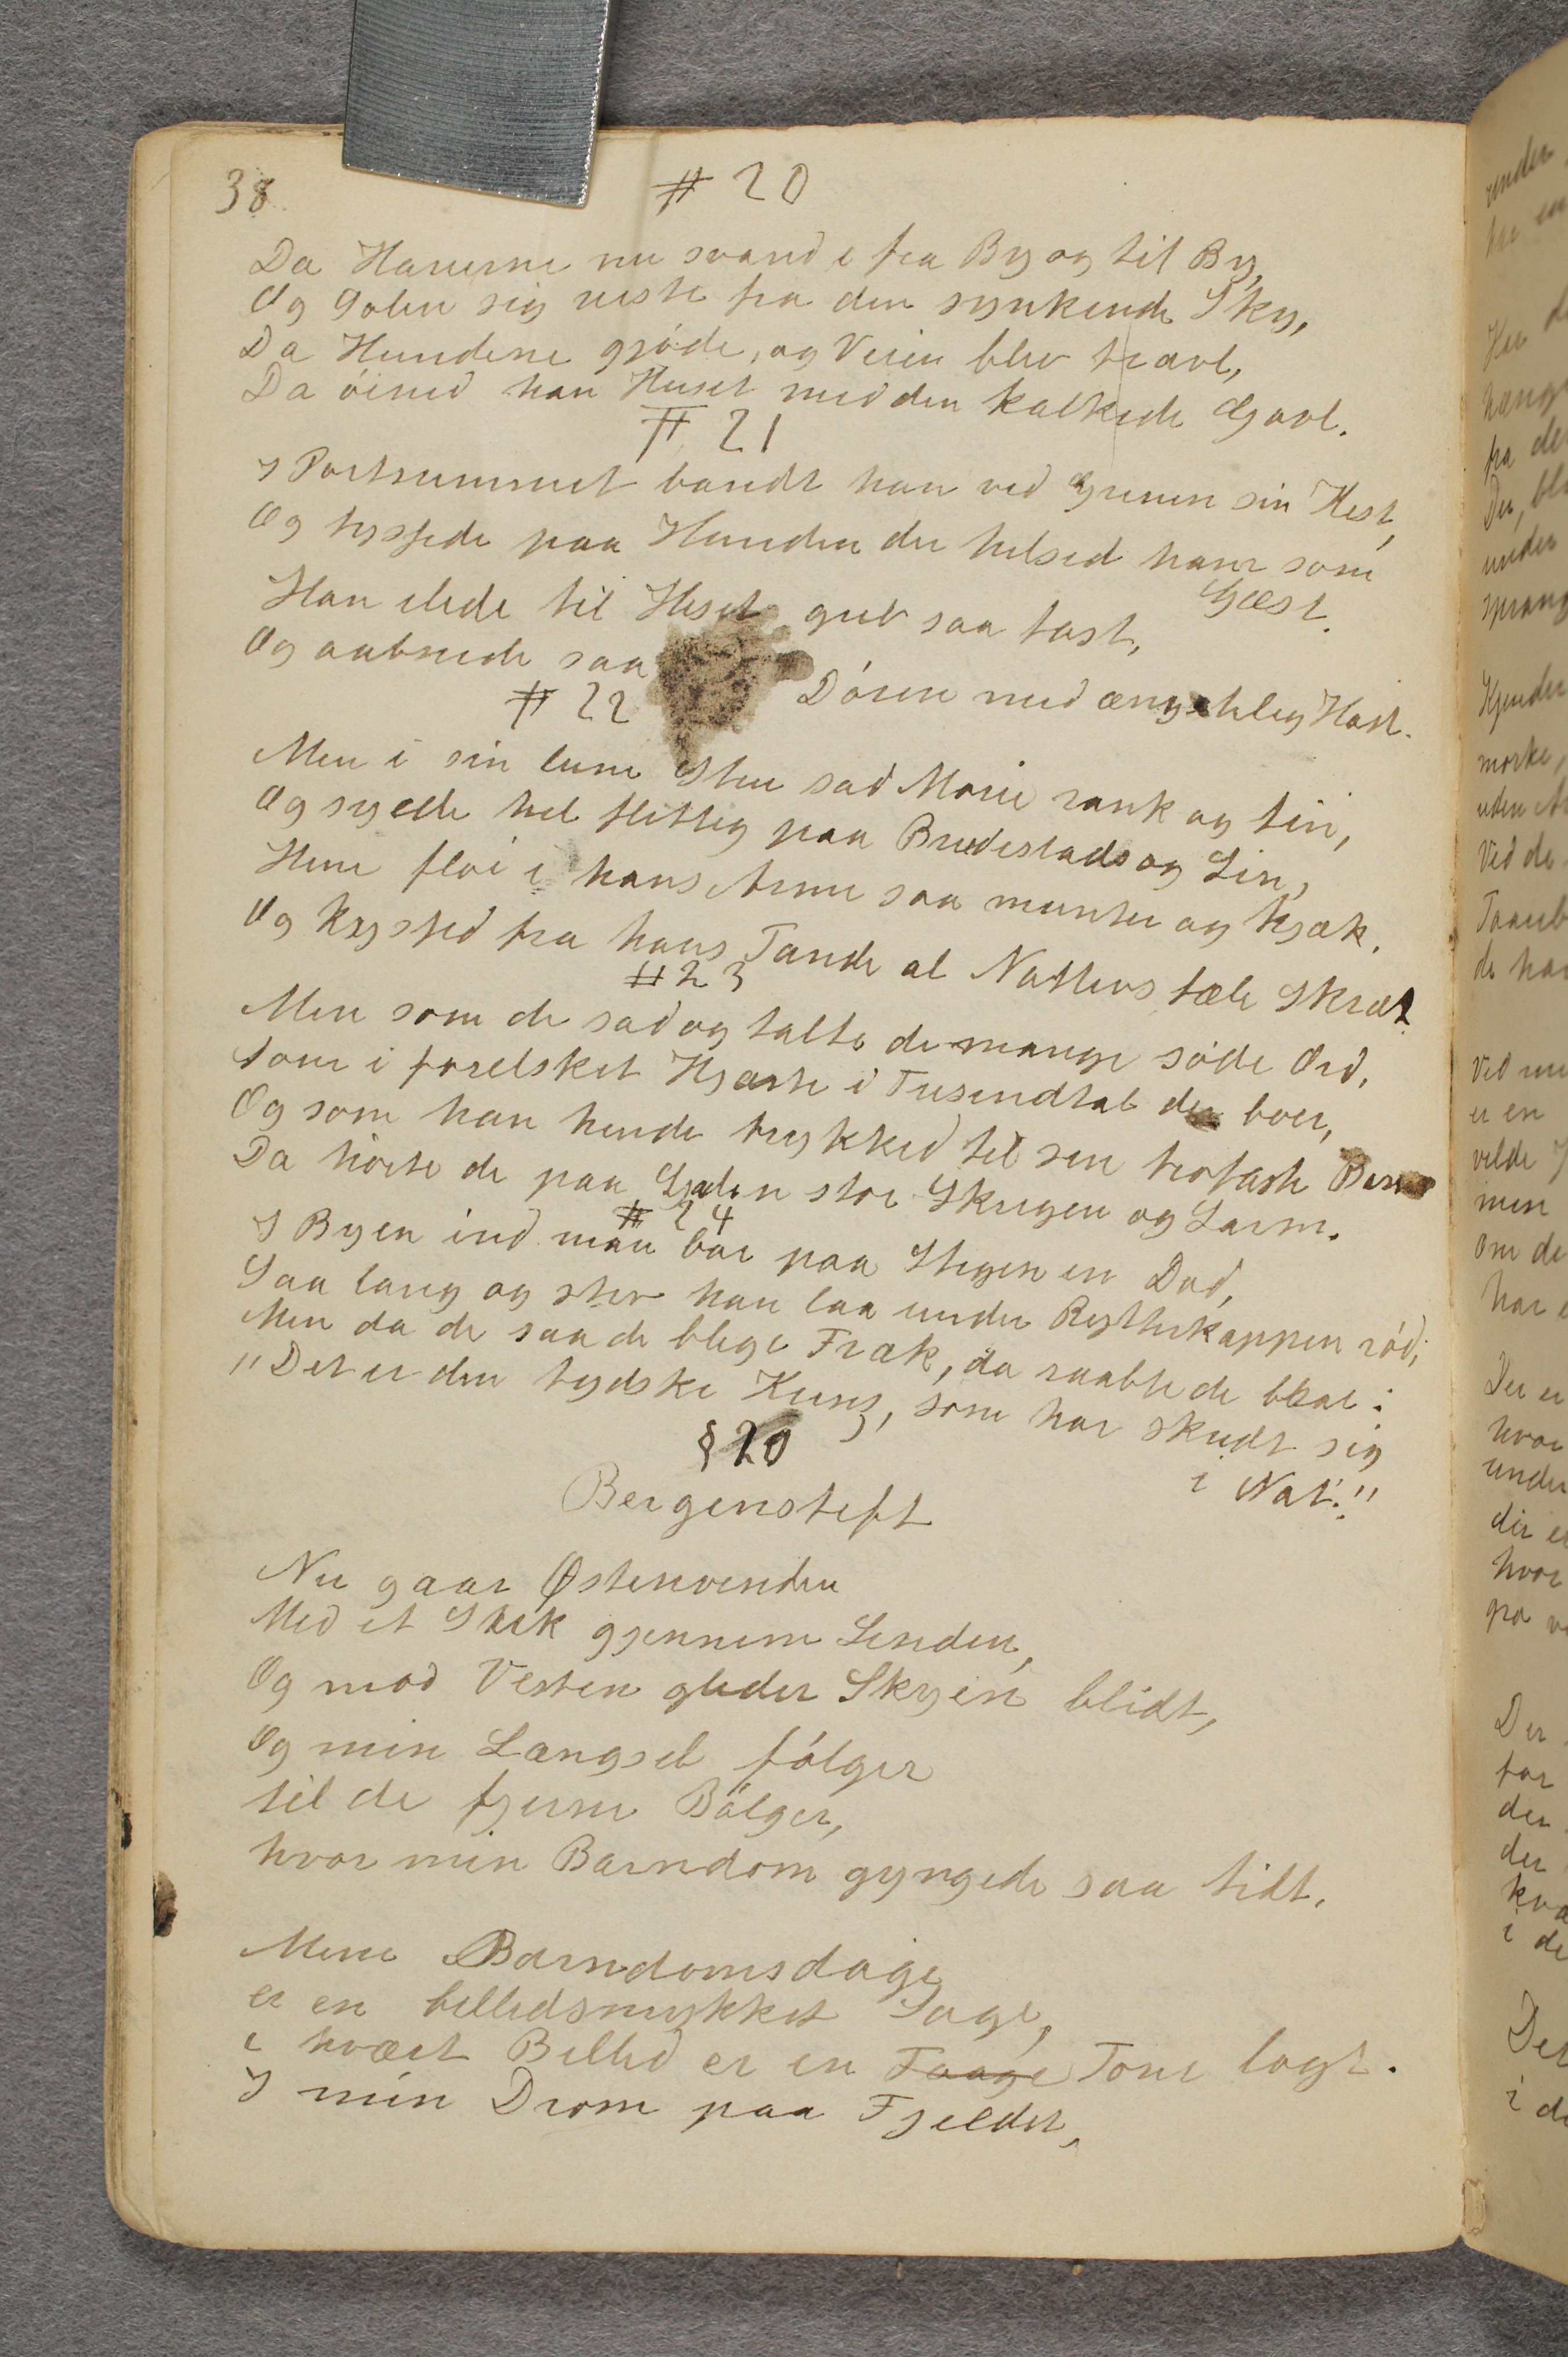 38
# 20
Da Hanerne nu svarede fra By og til By,
Og Solen sig reiste fra den synkende Sky,
Da Hundene gjøde, og Veien blev travl,
Da øined han Huset med den kalkede Gavl.
# 21
I Portrummet bandt han ved Grinen sin Hest,
Og hyssede paa Hunden der hilsed ham som
Gæst.
Han ilede til Huset greb saa fast,
Og aabnede saa Døren med ængstelig Hast.
# 22
Men i sin lune Stue sad Marie rank og fin,
Og syede hel flittig paa Brudestads og Lin,
Hun fløi i hans Arme saa munter og kjæk,
Og kyssed fra hans Pande al Nattens fæle Skræk
# 23
Men som de sad og talte de mange søde Ord,
Som i forelsket Hjærte i Tusendtal der boer,
Og som han hende trykked til sin trofaste Barm
Da hørte de paa Gaden stor Skrigen og Larm.
# 24
I Byen ind man bar paa Stigen en Død,
Saa lang og stiv han laa under Rytterkappen rød;
Men da de saa de blege Træk, da raabte de brat:
"Det er den tydske Kunz, som har skudt sig
i Nat."
§ 20
Bergenstift
Nu gaar Østenvinden
Med et Suk gjennem Linden,
Og mod Vesten glider Skyen blidt,
Og min Længsel følger
til de fjerne Bølger,
hvor min Barndom gyngede saa tidt.
Mine Barndomsdage
er en billedsmykket Sage,
i hvært Billed er en Taage Tone lagt.
I min Drøm paa Fjeldet,